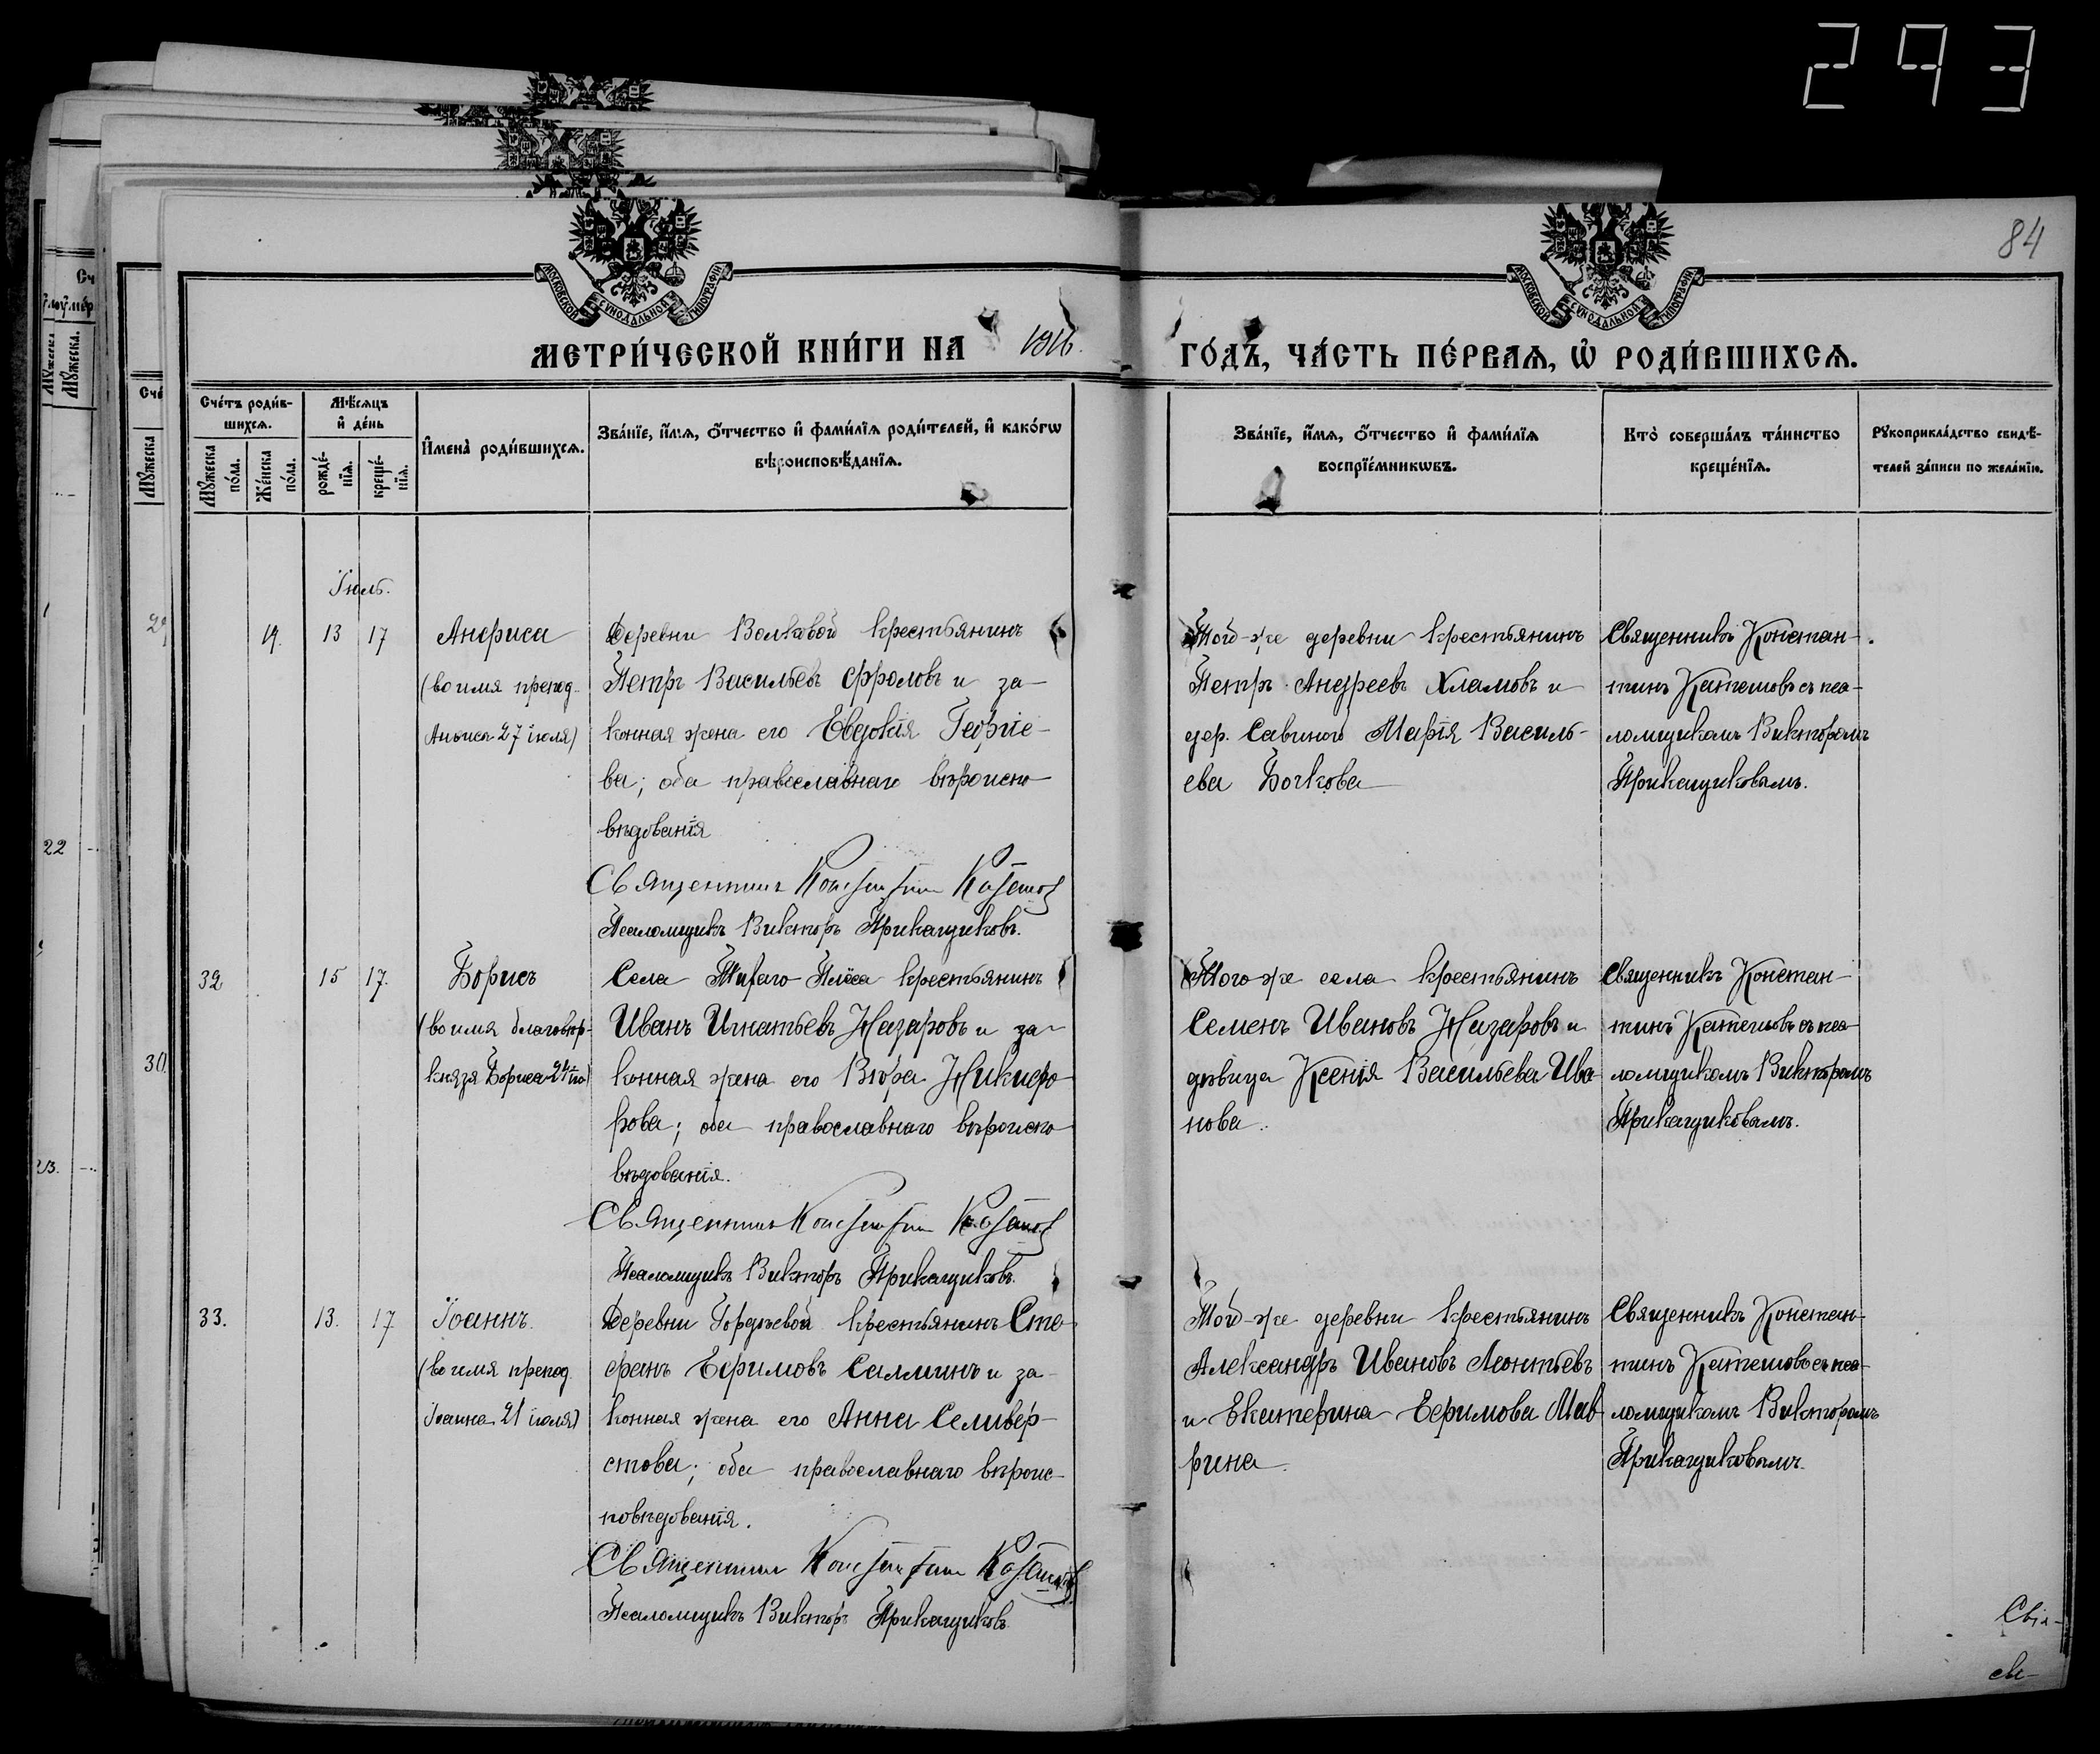 293
84
МОСКОВСКОЙ СѴНОДАЛЬНОЙ ТИПОГРАФІИ
МОСКОВСКОЙ СѴНОДАЛЬНОЙ ТИПОГРАФІИ
МЕТРИ́ЧЕСКОЙ КНИ́ГИ НА 1916.
ГО́ДЪ, ЧА́СТЬ ПЕ́РВАѦ, Ѡ҆ РОДИ́ВШИХСѦ.
Сче́тъ роди́в-
шихсѧ.
Мꙋ́жеска
по́ла.
Же́нска
по́ла.
Мѣ́сѧцъ
и҆ де́нь
рожде́-
нїѧ.
креще́-
нїѧ.
И҆мена̀ роди́вшихсѧ.
Зва́нїе, и҆́мѧ, ѻ҆́тчество и҆ фами́лїѧ роди́телей, и҆ како́гѡ
вѣроисповѣ́данїѧ.
Зва́нїе, и҆́мѧ, ѻ҆́тчество и҆ фами́лїѧ
воспрїе́мникѡвъ.
Кто̀ соверша́лъ та́инство
креще́нїѧ.
Рꙋкоприкла́дство свидѣ́-
телей за́писи по жела́нїю.
Іюль.
19. 13 17 Анфиса
(во имя препод.
Анфиса 27 іюля)
Деревни Волковой крестьянинъ
Петръ Васильевъ Фроловъ и за-
конная жена его Евдокія Георгіе-
ва; оба православнаго вѣроиспо-
вѣдованія
Священникъ Константинъ Катешов
Псаломщикъ Викторъ Прикащиковъ.
Той-же деревни крестьянинъ
Петръ Андреевъ Хламовъ и
дер. Савиной Марія Василь-
ева Бочкова
Священникъ Констан-
тинъ Катешовъ съ пса-
ломщикомъ Викторомъ
Прикащиковымъ.
32 15 17. Борисъ
(во имя благовѣр-
князя Бориса 24 ію)
Села Тихаго-Плёса крестьянинъ
Иванъ Игнатьевъ Назаровъ и за-
конная жена его Вѣра Никифо-
рова; оба православнаго вѣроиспо-
вѣдованія.
Священникъ Константинъ Катешов
Псаломщикъ Викторъ Прикащиковъ.
Того-же села крестьянинъ
Семенъ Ивановъ Назаровъ и
дѣвица Ксенія Васильева Ива-
нова.
Священникъ Констан-
тинъ Катешовъ съ пса-
ломщикомъ Викторомъ
Прикащиковымъ.
33. 13. 17 Іоаннъ.
(во имя препод.
Іоанна 21 іюля)
Деревни Гордѣевой крестьянинъ Сте-
фанъ Ефимовъ Салминъ и за-
конная жена его Анна Селивер-
стова; оба православнаго вѣроис-
повѣдованія.
Священникъ Константинъ Катешов
Псаломщикъ Викторъ Прикащиковъ.
Той-же деревни крестьянинъ
Александръ Ивановъ Леонтьевъ
и Екатерина Ефимова Мав-
рина.
Священникъ Констан-
тинъ Катешовъ съ пса-
ломщикомъ Викторомъ
Прикащиковымъ.